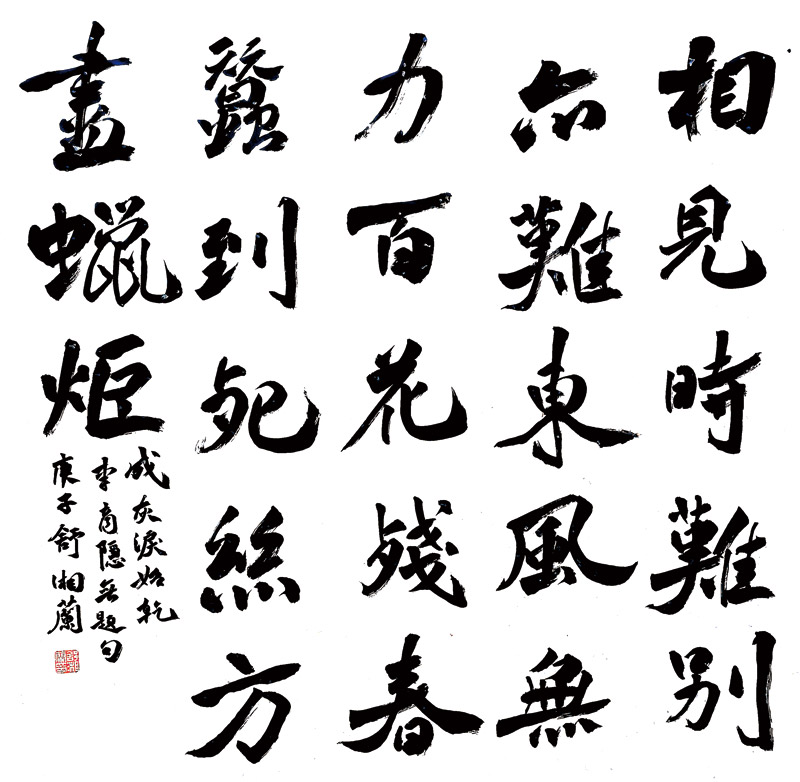 相見時難別
亦難東風無
力百花殘春
蠶到死絲方
盡蠟炬
成灰淚始乾
李商隱無題句
庚子舒湘蘭